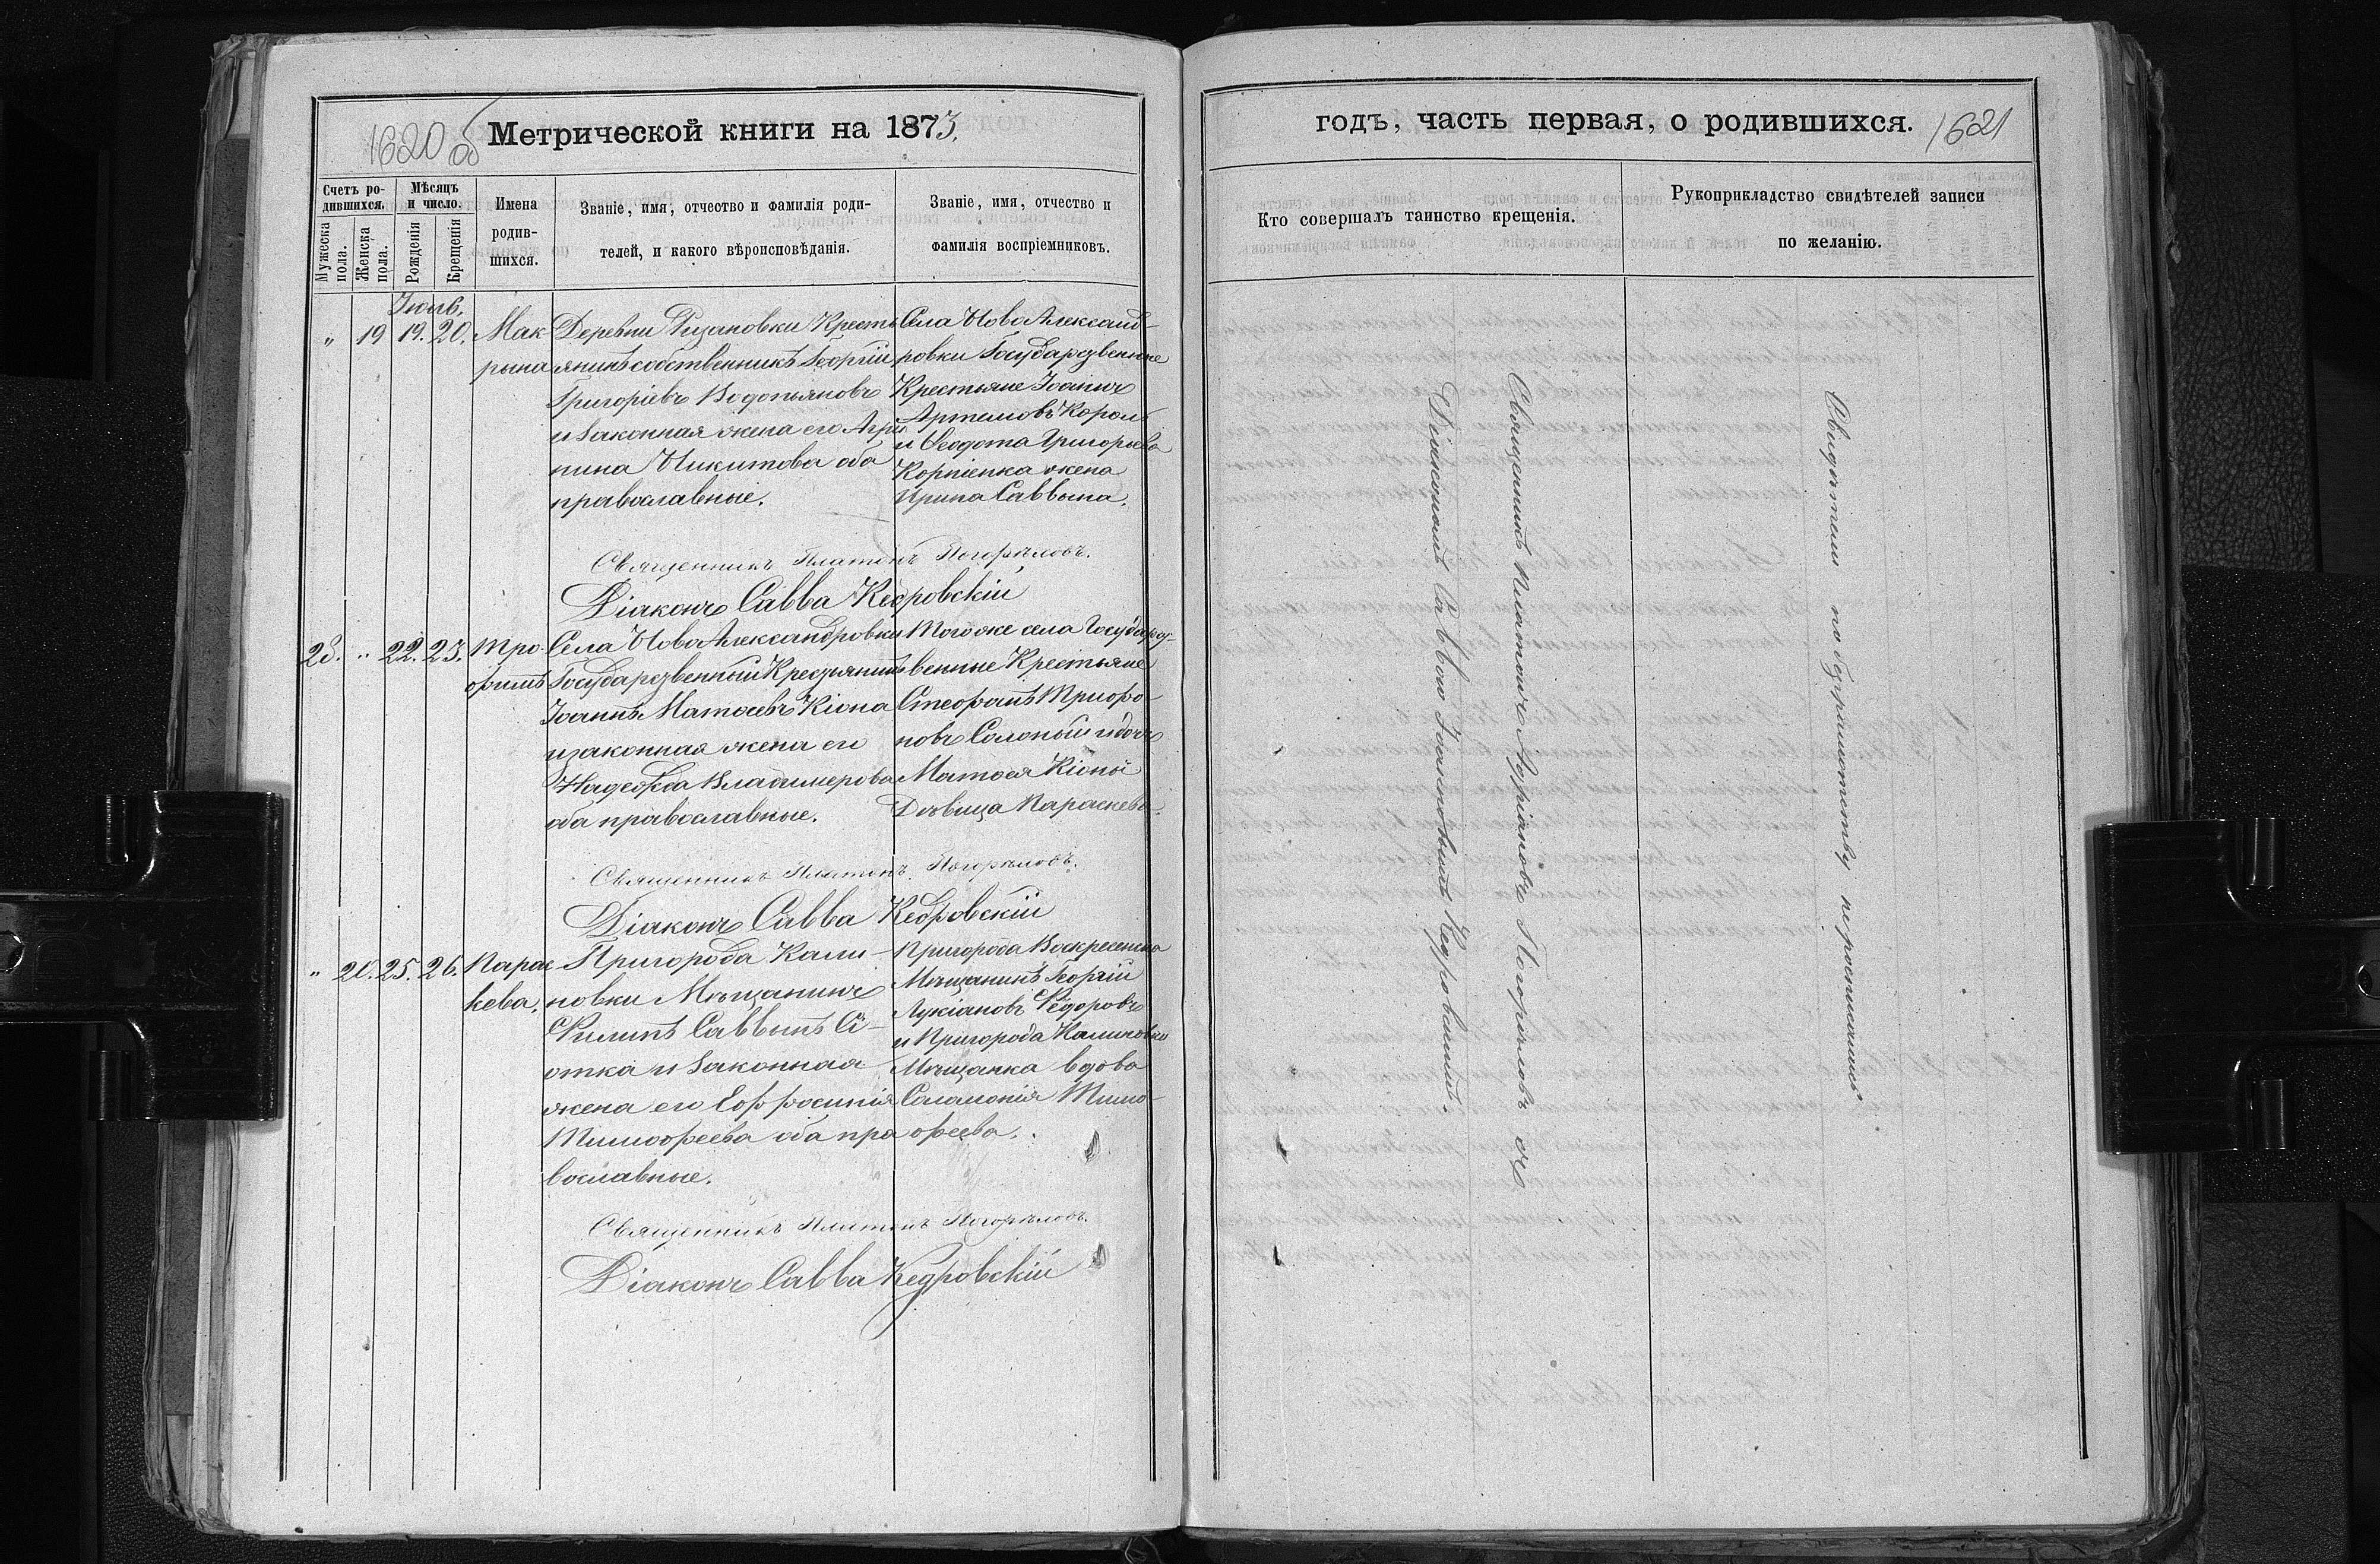 1620 об
Метрической книги на 1873.
Счетъ ро-
дившихся.
Мужеска
пола.
Женска
пола.
Мѣсяцъ
и число.
Рожденія
Крещенія
Имена
родив-
шихся.
Званіе, имя, отчество и фамилія роди-
телей, и какого вѣроисповѣданія.
Званіе, имя, отчество и
фамилія воспріемниковъ.
„ 19 19. 20.
Мак
рина
Деревни Кресть
янинъ собственникъ Георгій
Григоріевъ Водопьяновъ
и законная жена его Агри
пина Никитова оба
православные.
Села НовоАлександ-
ровки Государственные
Крестьяне Іоаннъ
Артемовъ Король
и Ѳеодота Григорьева
Корніенка жена
Ирина Саввина.
Священникъ Платонъ Погорѣловъ.
Діаконъ Савва Кедровскій
28. „ 22. 23.
Тро
фимъ
Села НовоАлександровки
Государственный Крестьянинъ
Іоаннъ Матѳіевъ Кіона
и законная жена его
Надежда Владимерова
оба православные.
Того же села Государст-
венные Крестьяне
Стефанъ Трифо-
новъ Солоный и дочь
Матѳея Кіоны
Дѣвица Параскева.
Священникъ Платонъ Погорѣловъ.
Діаконъ Савва Кедровскій
„ 20. 25. 26.
Парас
кева.
Пригорода Кали-
новки Мѣщанинъ
Филипъ Саввинъ Сі-
отка и законная
жена его Ефросинія
Тимофеева оба пра
вославные.
Пригорода Воскресенска
Мѣщанинъ Георгій
Лукіановъ Ѳедоровъ
и Пригорода Калиновки
Мѣщанка вдова
Соломонія Тимо-
феева.
Священникъ Платонъ Погорѣловъ.
Діаконъ Савва Кедровскій
годъ, часть первая, о родившихся.
1621
Кто совершалъ таинство крещенія.
Рукоприкладство свидѣтелей записи
по желанію.
Священникъ Платонъ Адріановъ Погорѣловъ съ
Діакономъ Саввою Іоанновымъ Кедровскимъ.
Свидѣтели по безграмотству не росписались